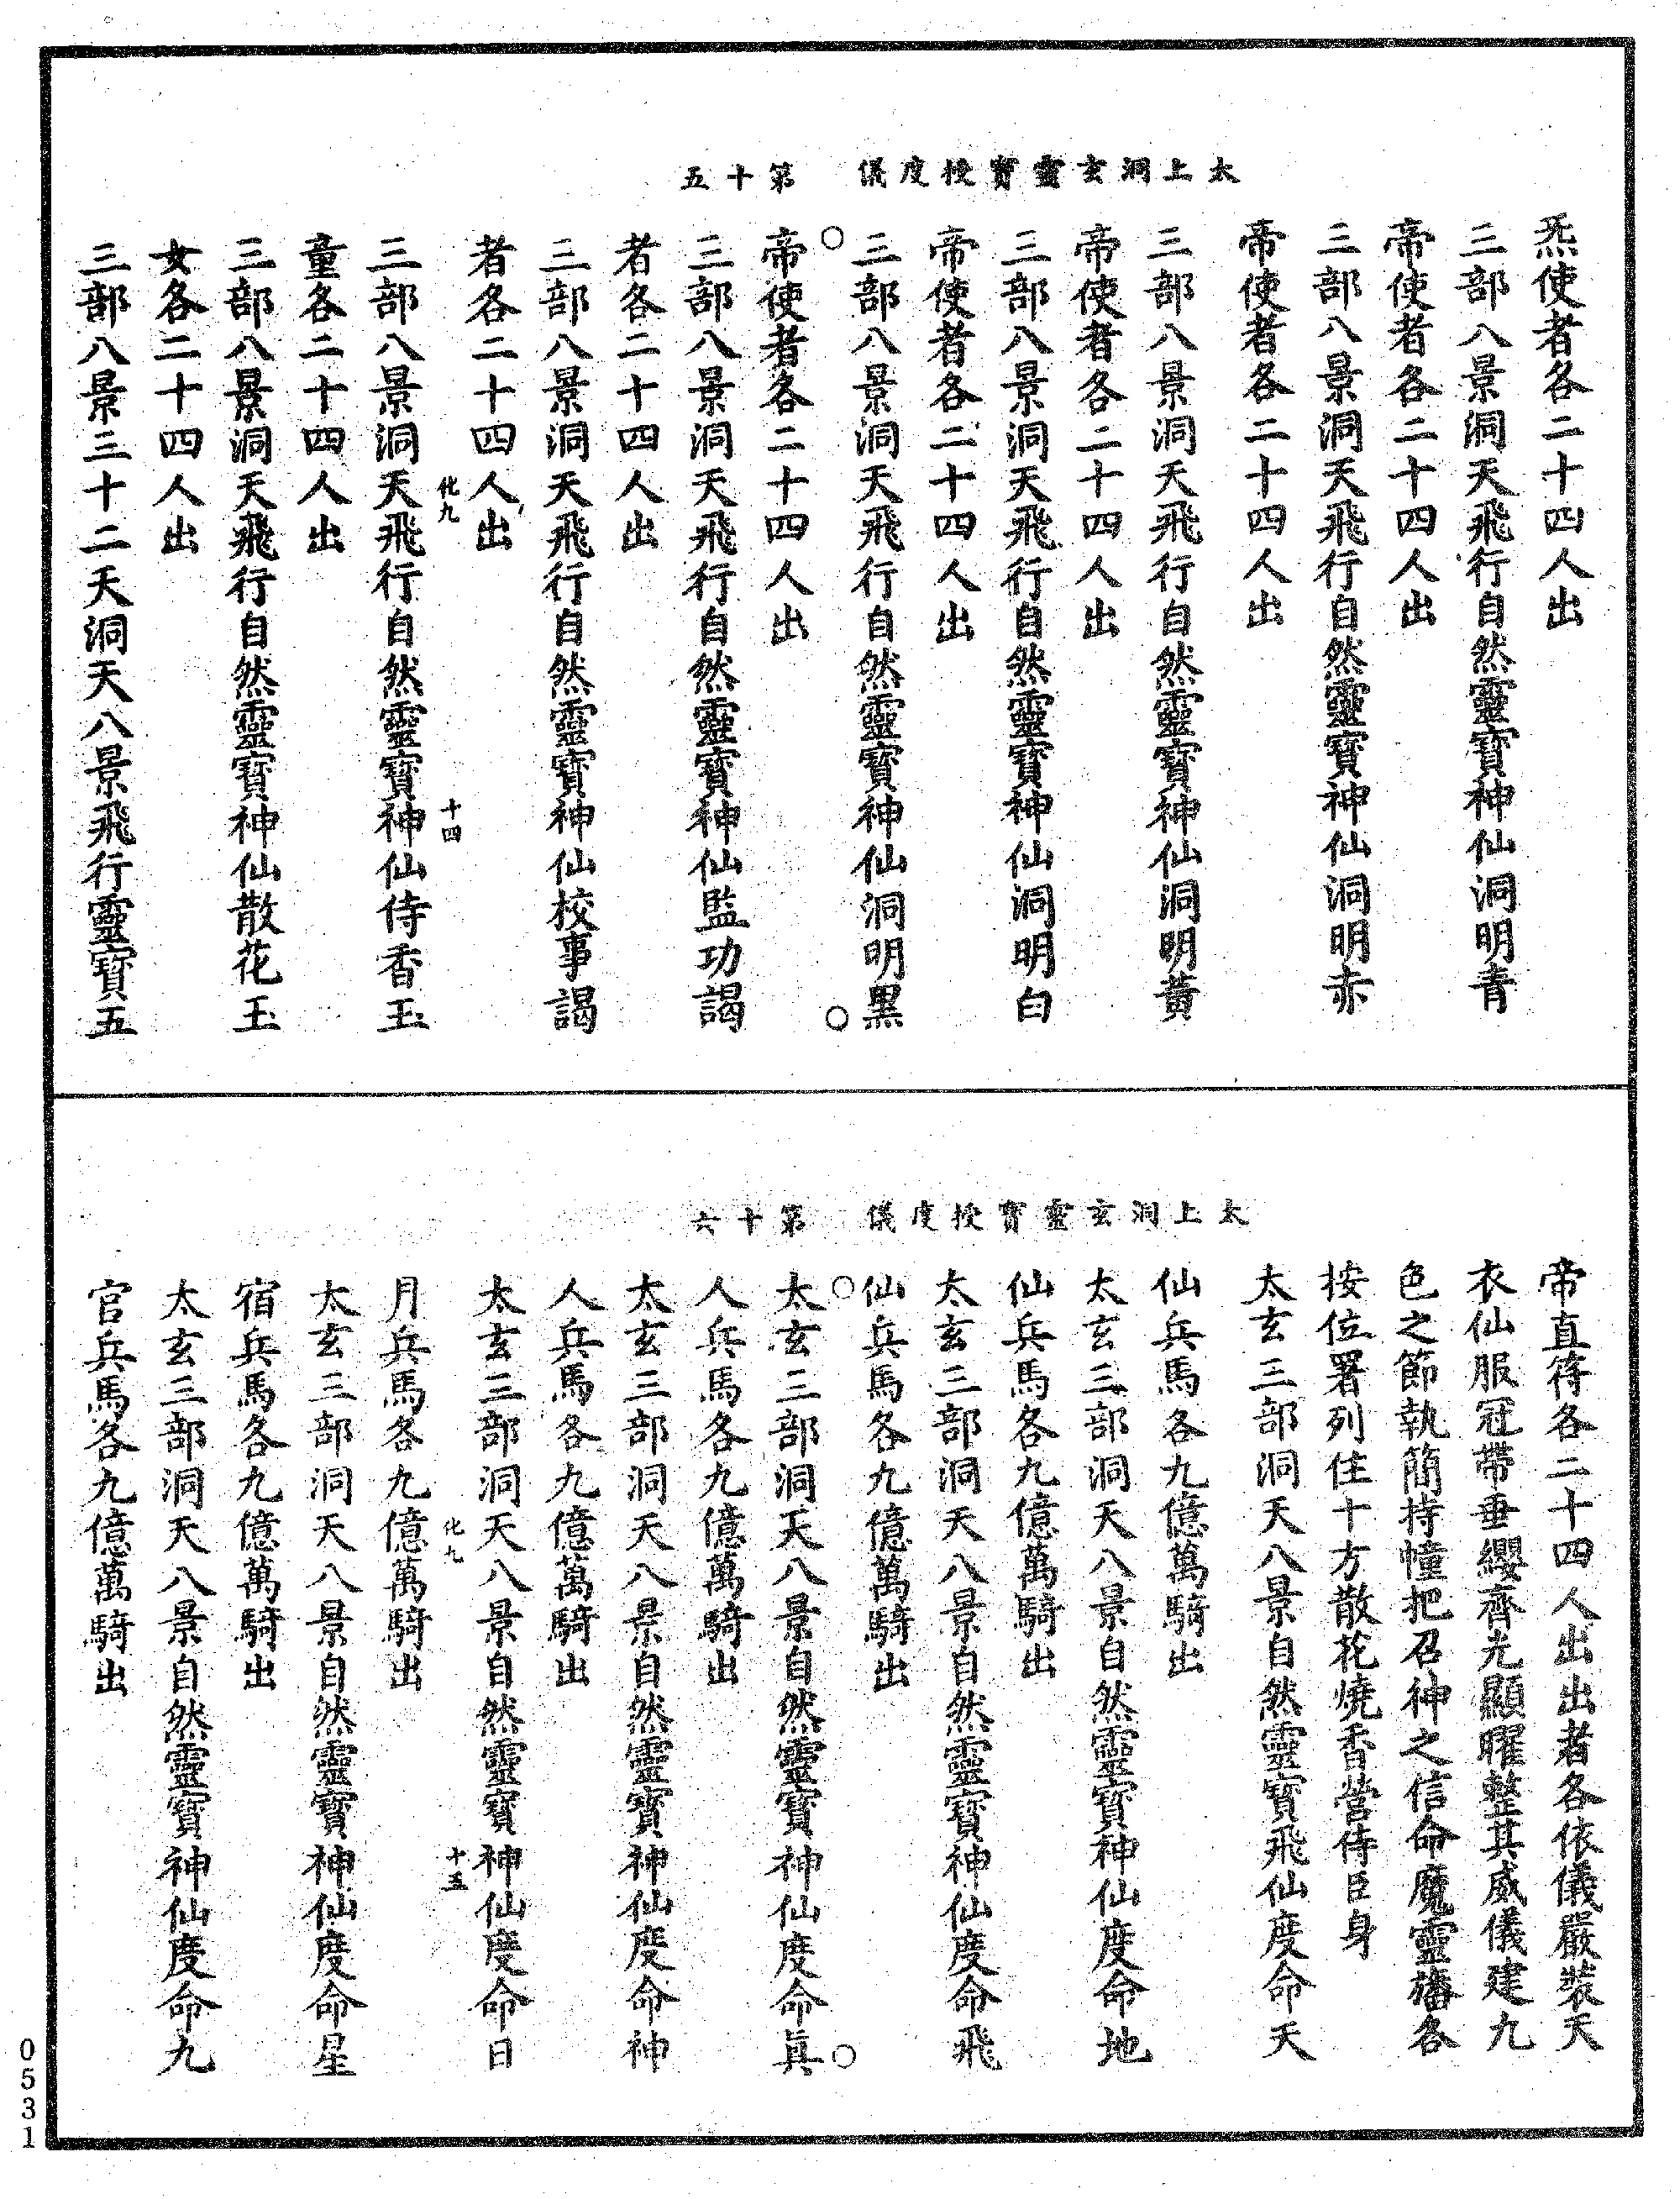 太上洞玄靈寶授度儀　第十五
炁使者各二十四人出
三部八景洞天飛行自然靈寶神仙洞明青
帝使者各二十四人出
三部八景洞天飛行自然靈寶神仙洞明赤
帝使者各二十四人出
三部八景洞天飛行自然靈寶神仙洞明黃
帝使者各二十四人出
三部八景洞天飛行自然靈寶神仙洞明白
帝使者各二十四人出
三部八景洞天飛行自然靈寶神仙洞明黑
帝使者各二十四人出
三部八景洞天飛行自然靈寶神仙監功謁
者各二十四人出
三部八景洞天飛行自然靈寶神仙校事謁
者各二十四人出
化九　十四
三部八景洞天飛行自然靈寶神仙侍香玉
童各二十四人出
三部八景洞天飛行自然靈寶神仙散花玉
女各二十四人出
三部八景三十二天洞天八景飛行靈寶五
太上洞玄靈寶授度儀　第十六
帝直符各二十四人出出者各依儀嚴裝天
衣仙服冠帶垂纓齊光顯曜整其威儀建九
色之節執簡持幢把召神之信命魔靈旛各
按位署列住十方散花燒香營侍臣身
太玄三部洞天八景自然靈寶飛仙度命天
仙兵馬各九億萬騎出
太玄三部洞天八景自然靈寶神仙度命地
仙兵馬各九億萬騎出
太玄三部洞天八景自然靈寶神仙度命飛
仙兵馬各九億萬騎出
太玄三部洞天八景自然靈寶神仙度命眞
人兵馬各九億萬騎出
太玄三部洞天八景自然靈寶神仙度命神
人兵馬各九億萬騎出
太玄三部洞天八景自然靈寶神仙度命日
化九　十五
月兵馬各九億萬騎出
太玄三部洞天八景自然靈寶神仙度命星
宿兵馬各九億萬騎出
太玄三部洞天八景自然靈寶神仙度命九
官兵馬各九億萬騎出
0531